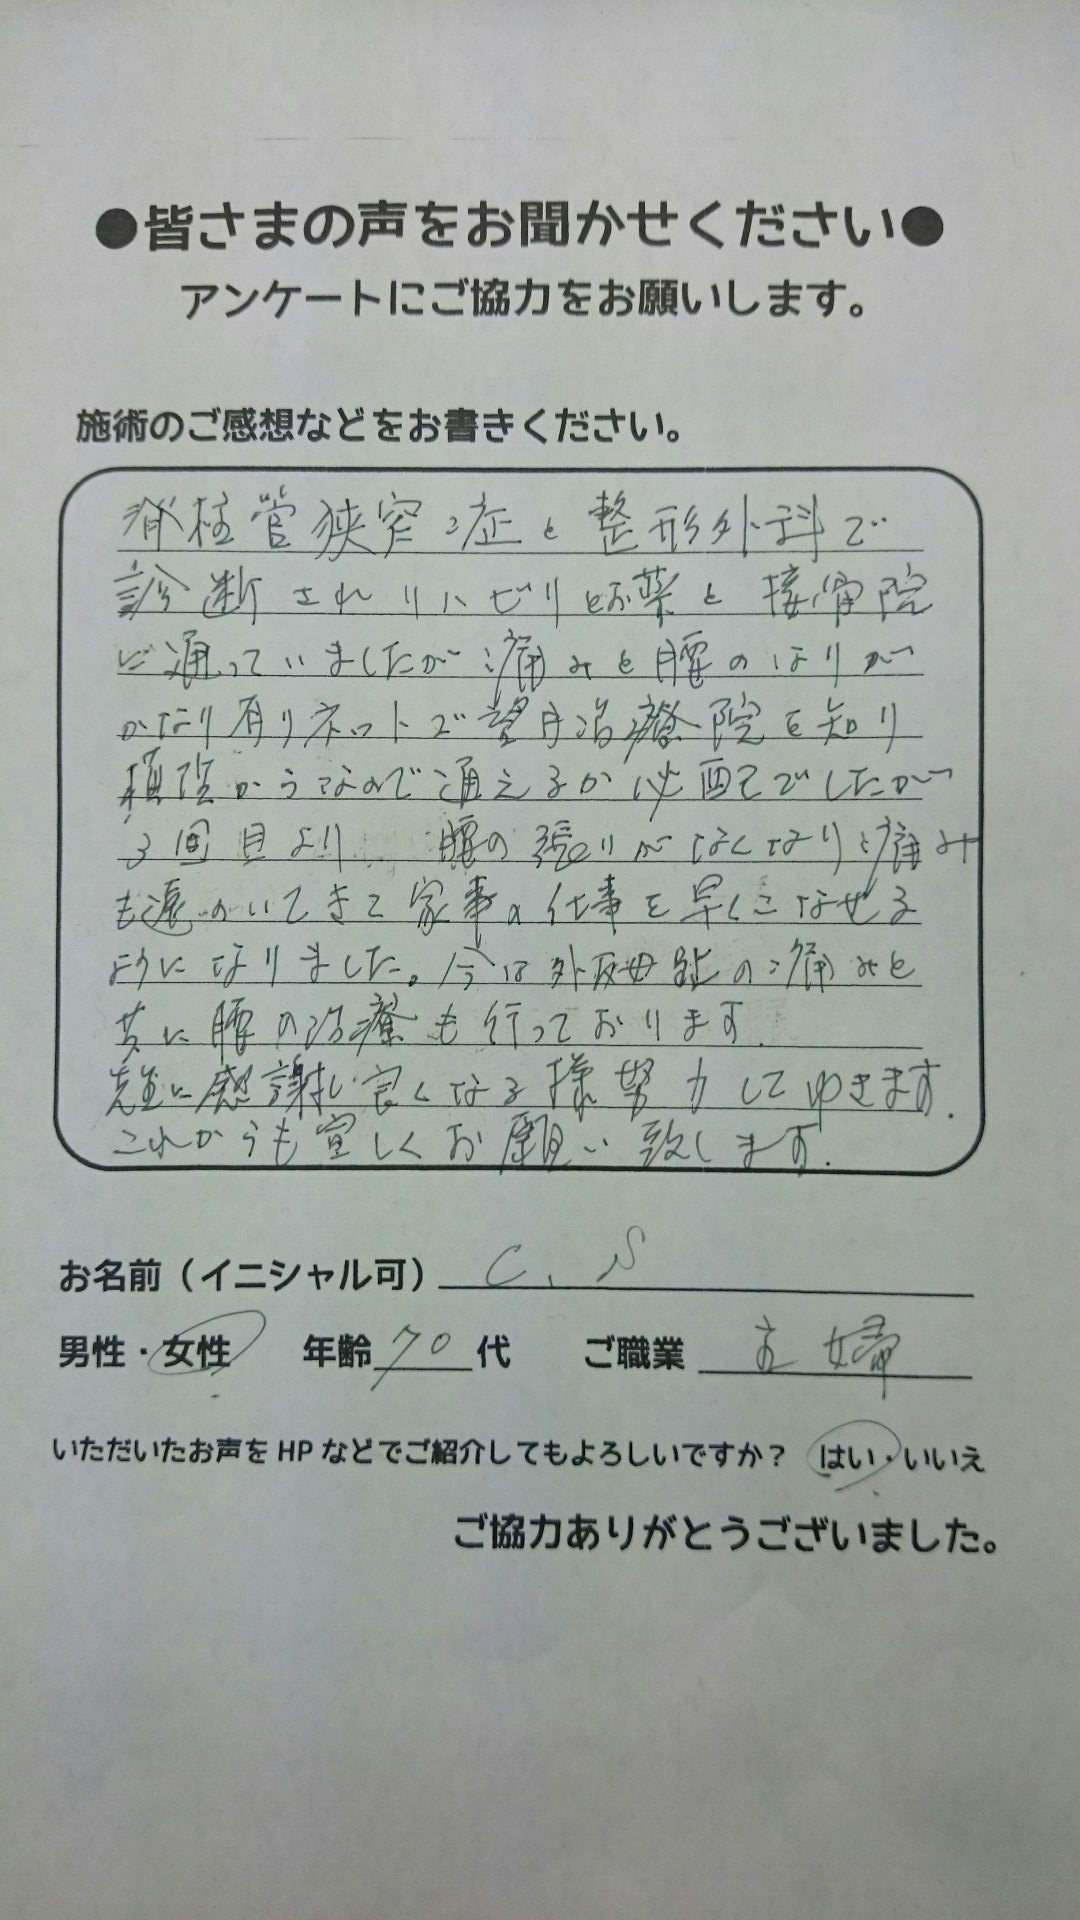 ●皆さまの声をお聞かせください●
アンケートにご協力をお願いします。
施術のご感想などをお書きください。
脊柱管狭窄症と整形外科で
診断されリハビリとお薬と接骨院
に通っていましたが痛みと腰のはりが
かなり有りネットで望月治療院を知り
横浜からなので通えるか心配でしたが
3回目より 腰の張りがなくなり痛み
も遠のいてきて家事の仕事を早くこなせる
ようになりました。今は外反母趾の痛みと
共に腰の治療も行っております.
先生に感謝し良くなる様努力してゆきます.
これからも宜しくお願い致します.
お名前（イニシャル可） C. S
男性・女性 年齢 70 代 ご職業 主婦
いただいたお声を HP などでご紹介してもよろしいですか？ はい・いいえ
ご協力ありがとうございました。